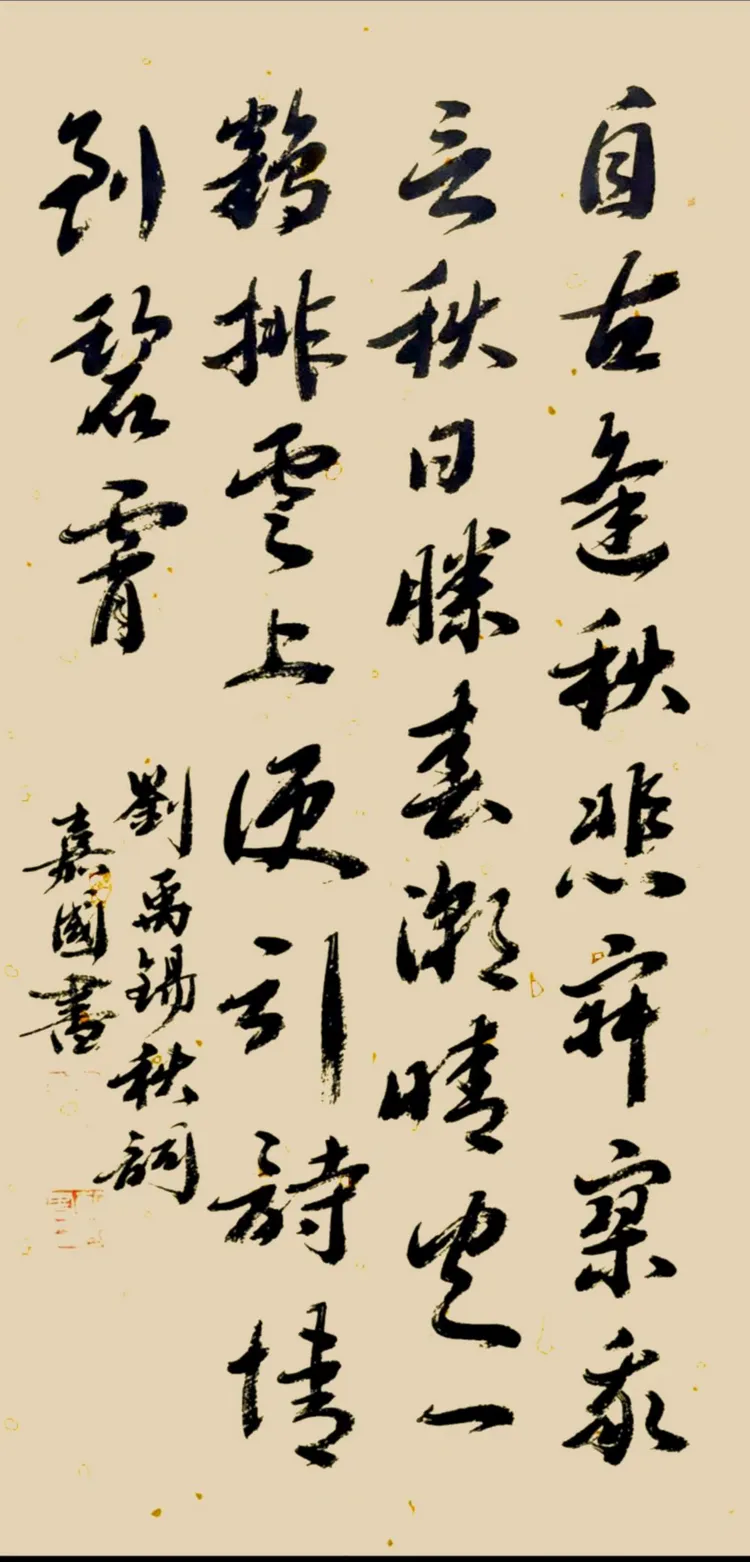 自古逢秋悲寂寥我
言秋日勝春潮晴空一
鶴排雲上便引詩情
到碧霄
劉禹錫秋詞
嘉國書